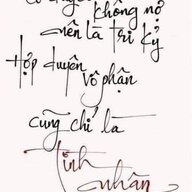 Có duyên không nợ
nên là Tri Kỷ
Hợp duyên vô phận
cũng chỉ là
tình nhân